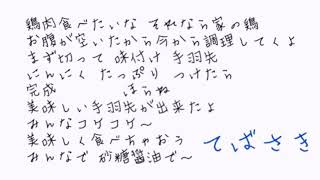 鶏肉食べたいな それなら家の鶏
お腹が空いたから今から調理してくよ
まず切って 味付け 手羽先
にんにく たっぷり つけたら
完成 ほらね
美味しい手羽先が出来たよ
みんなコケコケ〜
美味しく食べちゃおう
みんなで 砂糖醤油で〜
てばさき